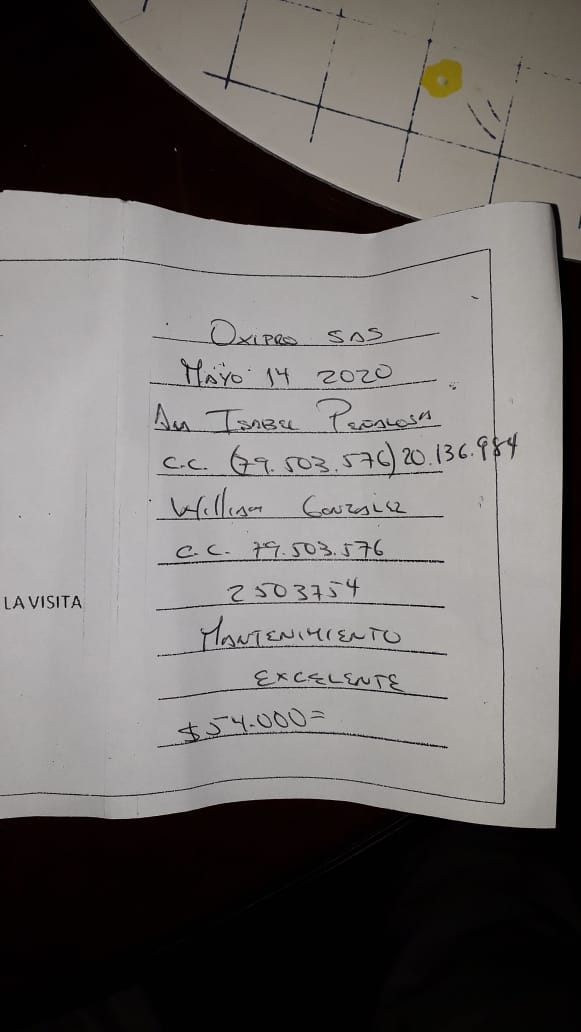 OXIPRO SAS
MAYO 14 2020
ANA ISABEL PEDALOSA
C.C. (79.503.576) 20.136.984
William GONZALEZ
C.C. 79.503.576
LA VISITA
2503754
MANTENIMIENTO
EXCELENTE
$54.000=